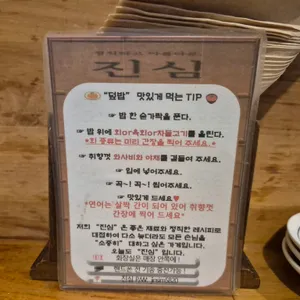 진심
"덮밥" 맛있게 먹는 TIP
☞ 밥 한 숟가락을 푼다.
☞ 밥 위에 회or육회or자몰고기를 올린다.
*회 종류는 미리 간장을 찍어 주세요.*
☞ 취향껏 와사비와 야채를 곁들여 주세요.
☞ 입에 넣어주세요.
☞ 꼭~! 꼭~! 씹어주세요.
♥ 맛있게 드세요♥
*연어는 살짝 간이 되어 있어 취향껏
간장에 찍어 드세요*
저희 "진심" 은 좋은 재료와 정직한 레시피로
대접하여 다소 늦더라도 모든 손님을
"소중히" 대하고 싶은 가게입니다.
오늘도 "진심" 입니다.
화장실은 매장 안쪽에